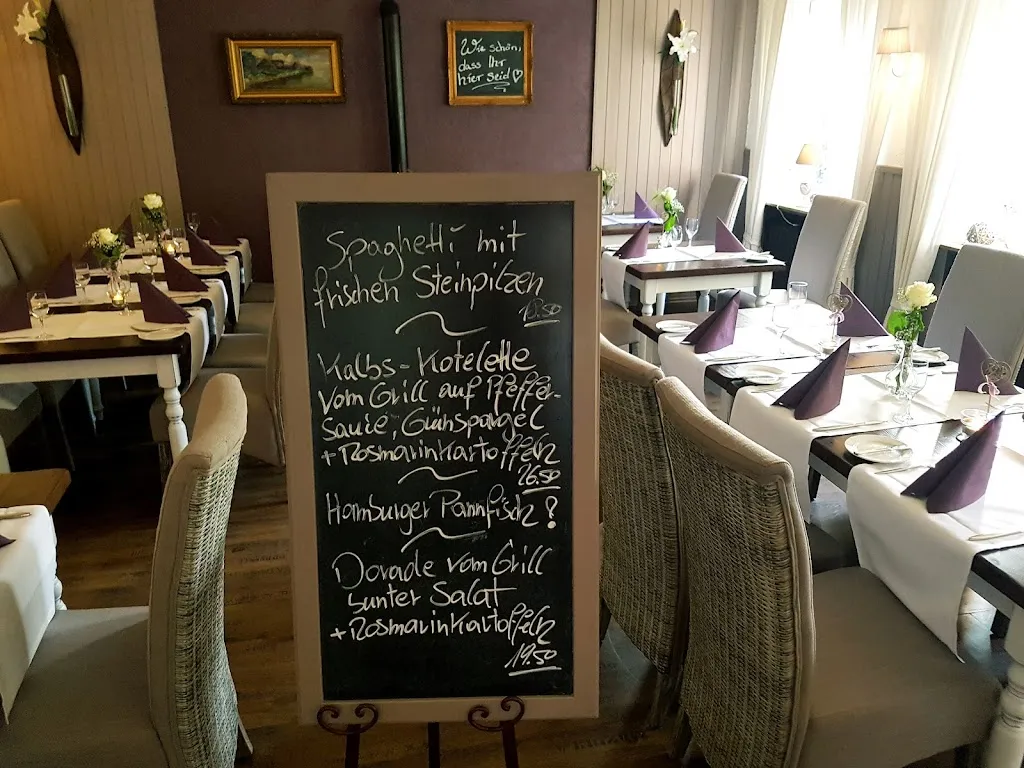 Wie schön,
dass Ihr
hier seid ♡
Spaghetti mit
frischen Steinpilzen
Kalbs-Kotelette
vom Grill auf Pfeffer-
sauce, Grünspargel
+ Rosmarinkartoffeln
26.50
Hamburger Pannfisch
Dorade vom Grill
bunter Salat
+ Rosmarinkartoffeln
19.50